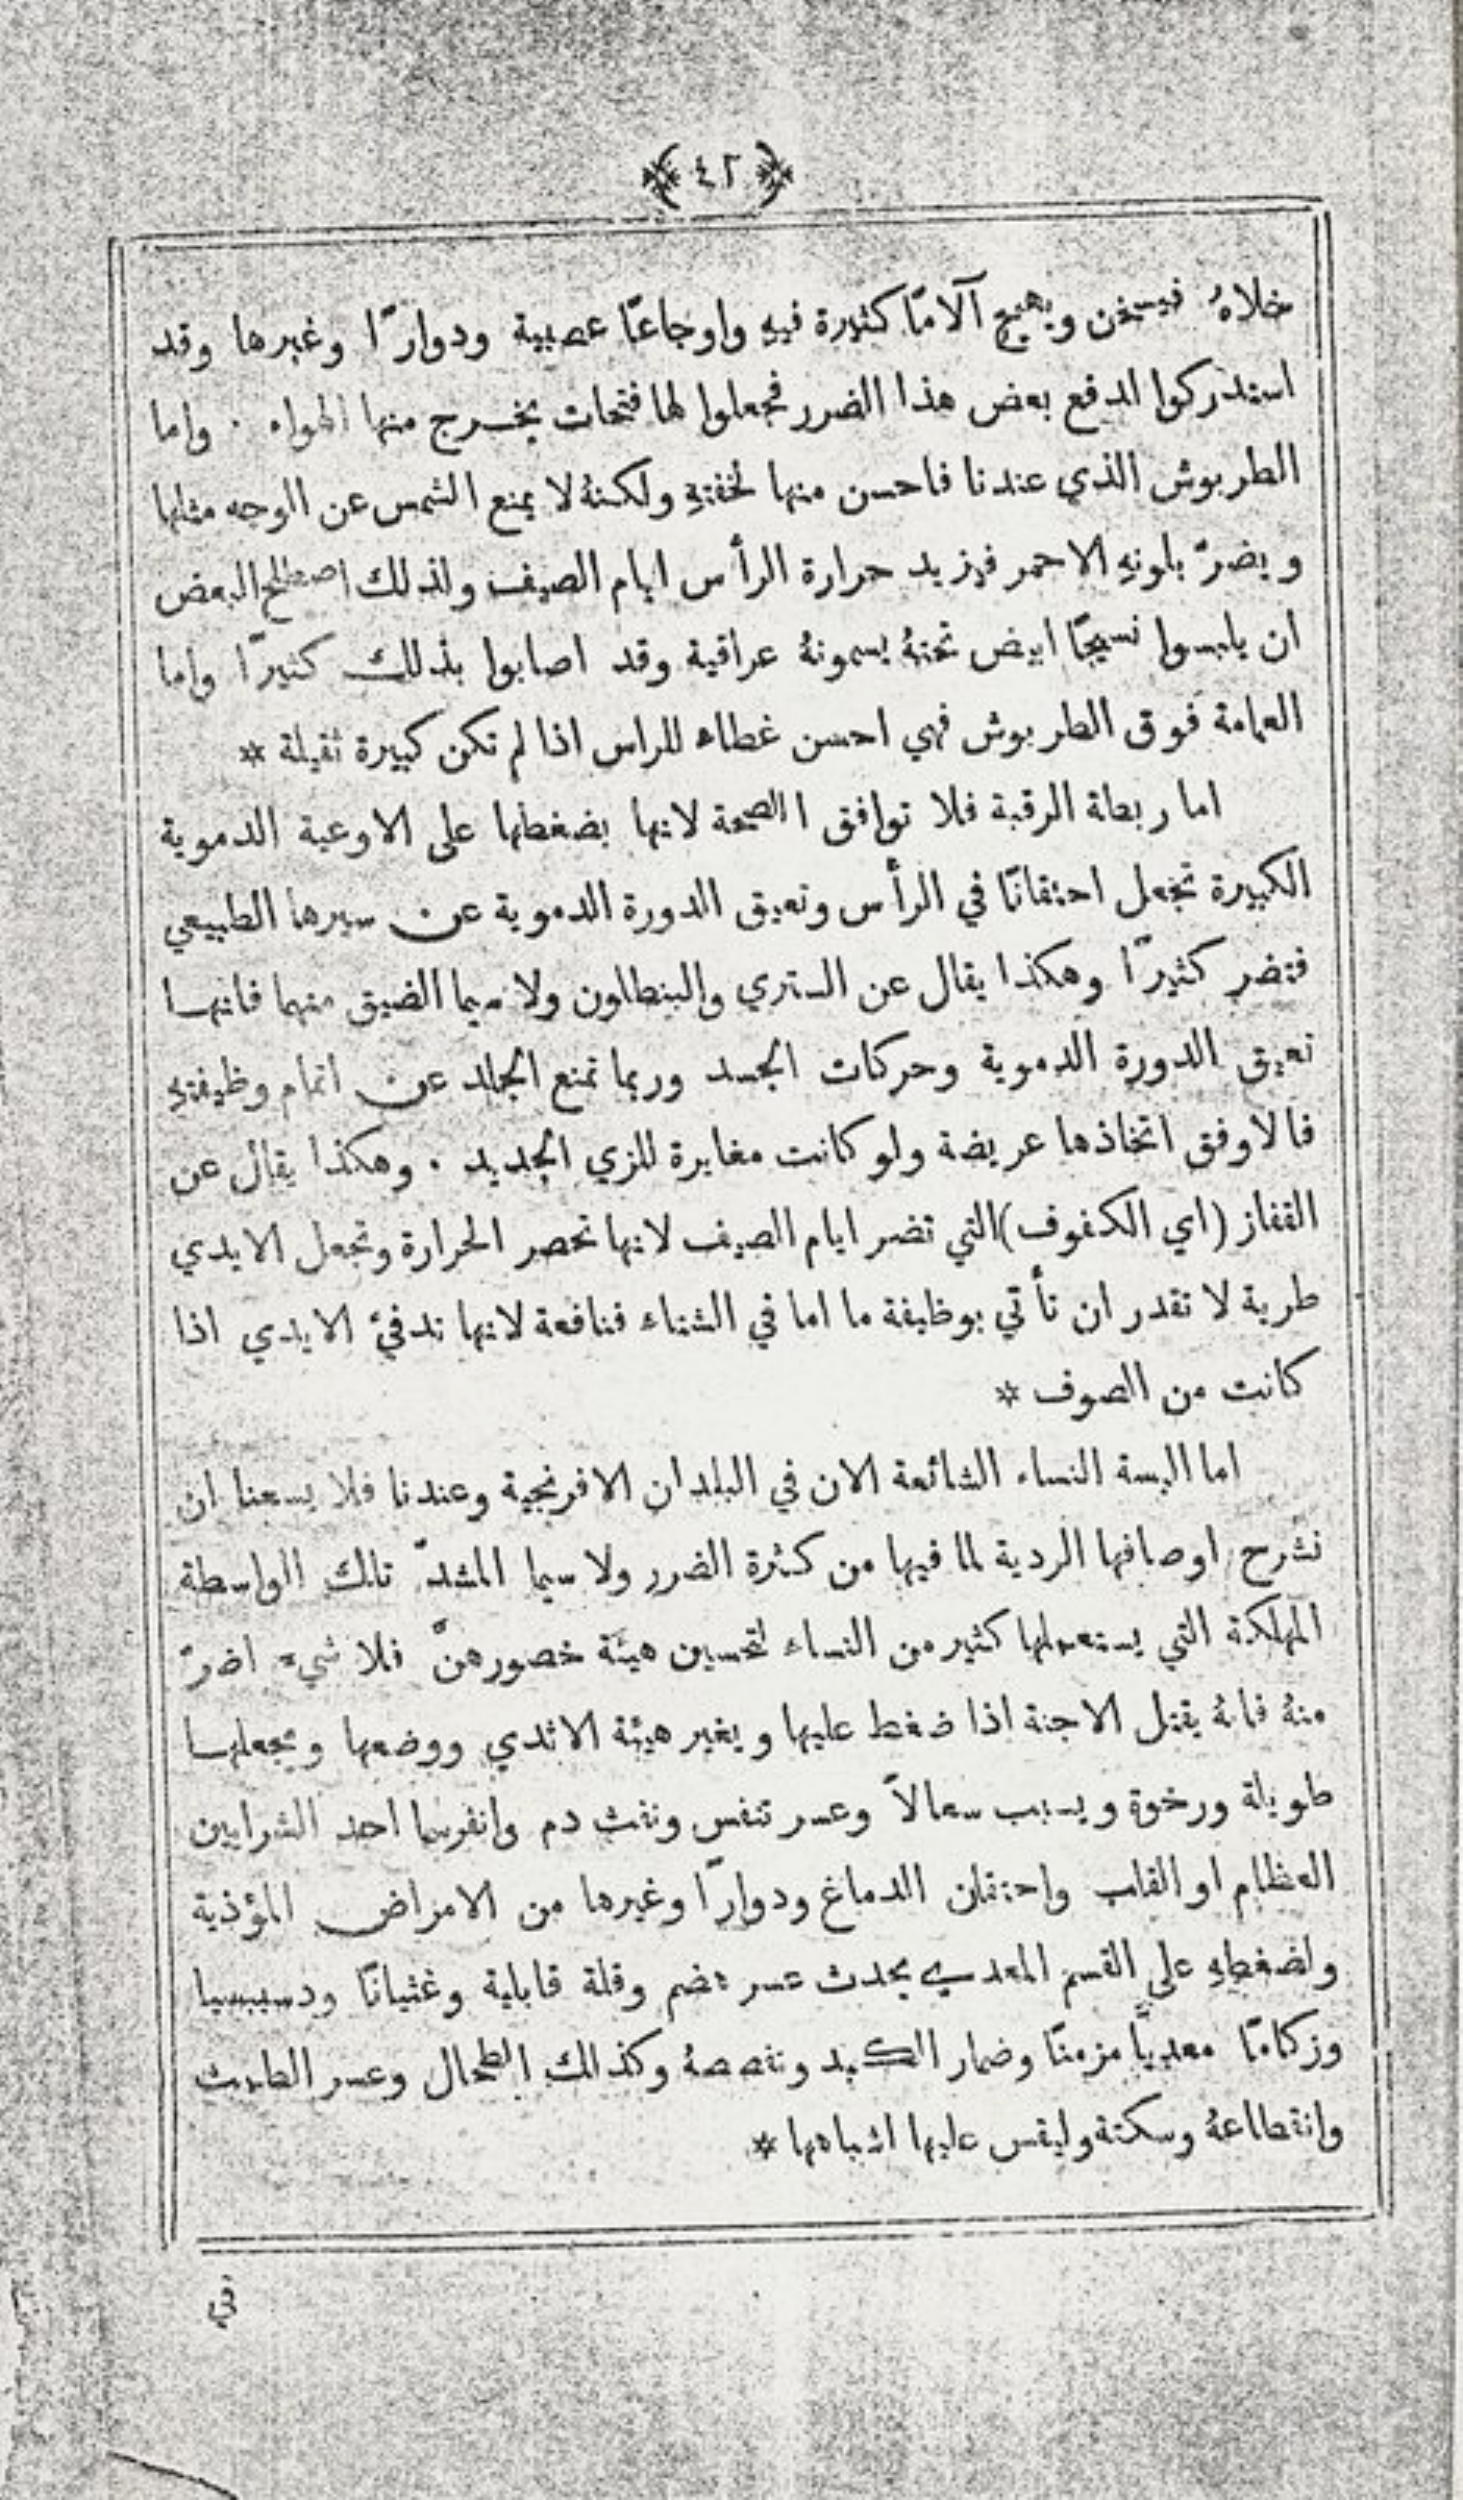 ﴿ ٤٢ ﴾
خلاهُ فيسخن ويهيج آلامًا كثيرة فيهِ واوجاعًا عصبية ودوارًا وغيرها وقد
استدركوا لدفع بعض هذا الضرر فجعلوا لها فتحات يخرج منها الهواء . واما
الطربوش الذي عندنا فاحسن منها لخفتهِ ولكنهُ لا يمنع الشمس عن الوجه مثلها
ويضرّ بلونهِ الاحمر فيزيد حرارة الرأس ايام الصيف ولذلك اصطلح البعض
ان يلبسوا نسيجًا ابيض تحتهُ يسمونهُ عراقية وقد اصابوا بذلك كثيرًا واما
العمامة فوق الطربوش فهي احسن غطاء للراس اذا لم تكن كبيرة ثقيلة *
اما ربطة الرقبة فلا توافق الصحة لانها بضغطها على الاوعية الدموية
الكبيرة تجعل احتقانًا في الرأس وتعيق الدورة الدموية عن سيرها الطبيعي
فتضر كثيرًا وهكذا يقال عن الستري والبنطلون ولا سيما الضيق منهما فانهما
تعيق الدورة الدموية وحركات الجسد وربما تمنع الجلد عن اتمام وظيفتهِ
فالاوفق اتخاذها عريضة ولو كانت مغايرة للزي الجديد . وهكذا يقال عن
القفاز (اي الكفوف) التي تضر ايام الصيف لانها تحصر الحرارة وتجعل الايدي
طرية لا تقدر ان تأتي بوظيفة ما اما في الشتاء فنافعة لانها تدفئ الايدي اذا
كانت من الصوف *
اما البسة النساء الشائعة الان في البلدان الافرنجية وعندنا فلا يسعنا ان
نشرح اوصافها الردية لما فيها من كثرة الضرر ولا سيما المشدّ تلك الواسطة
المهلكة التي يستعملها كثير من النساء لتحسين هيئة خصورهنّ فلا شيء اضرّ
منهُ فانهُ يقتل الاجنة اذا ضغط عليها ويغير هيئة الاثدي ووضعها ويجعلها
طويلة ورخوة ويسبب سعالاً وعسر تنفس ونفث دم وانفرسما احد الشرايين
العظام او القلب واحتقان الدماغ ودوارًا وغيرها من الامراض المؤذية
ولضغطهِ على القسم المعدي يحدث عسر هضم وقلة قابلية وغثيانًا ودسببسيا
وزكامًا معديًّا مزمنًا وضمار الكبد ونقصهُ وكذالك الطحال وعسر الطمث
وانقطاعهُ وسكتة وليقس عليها اشباهها *
في